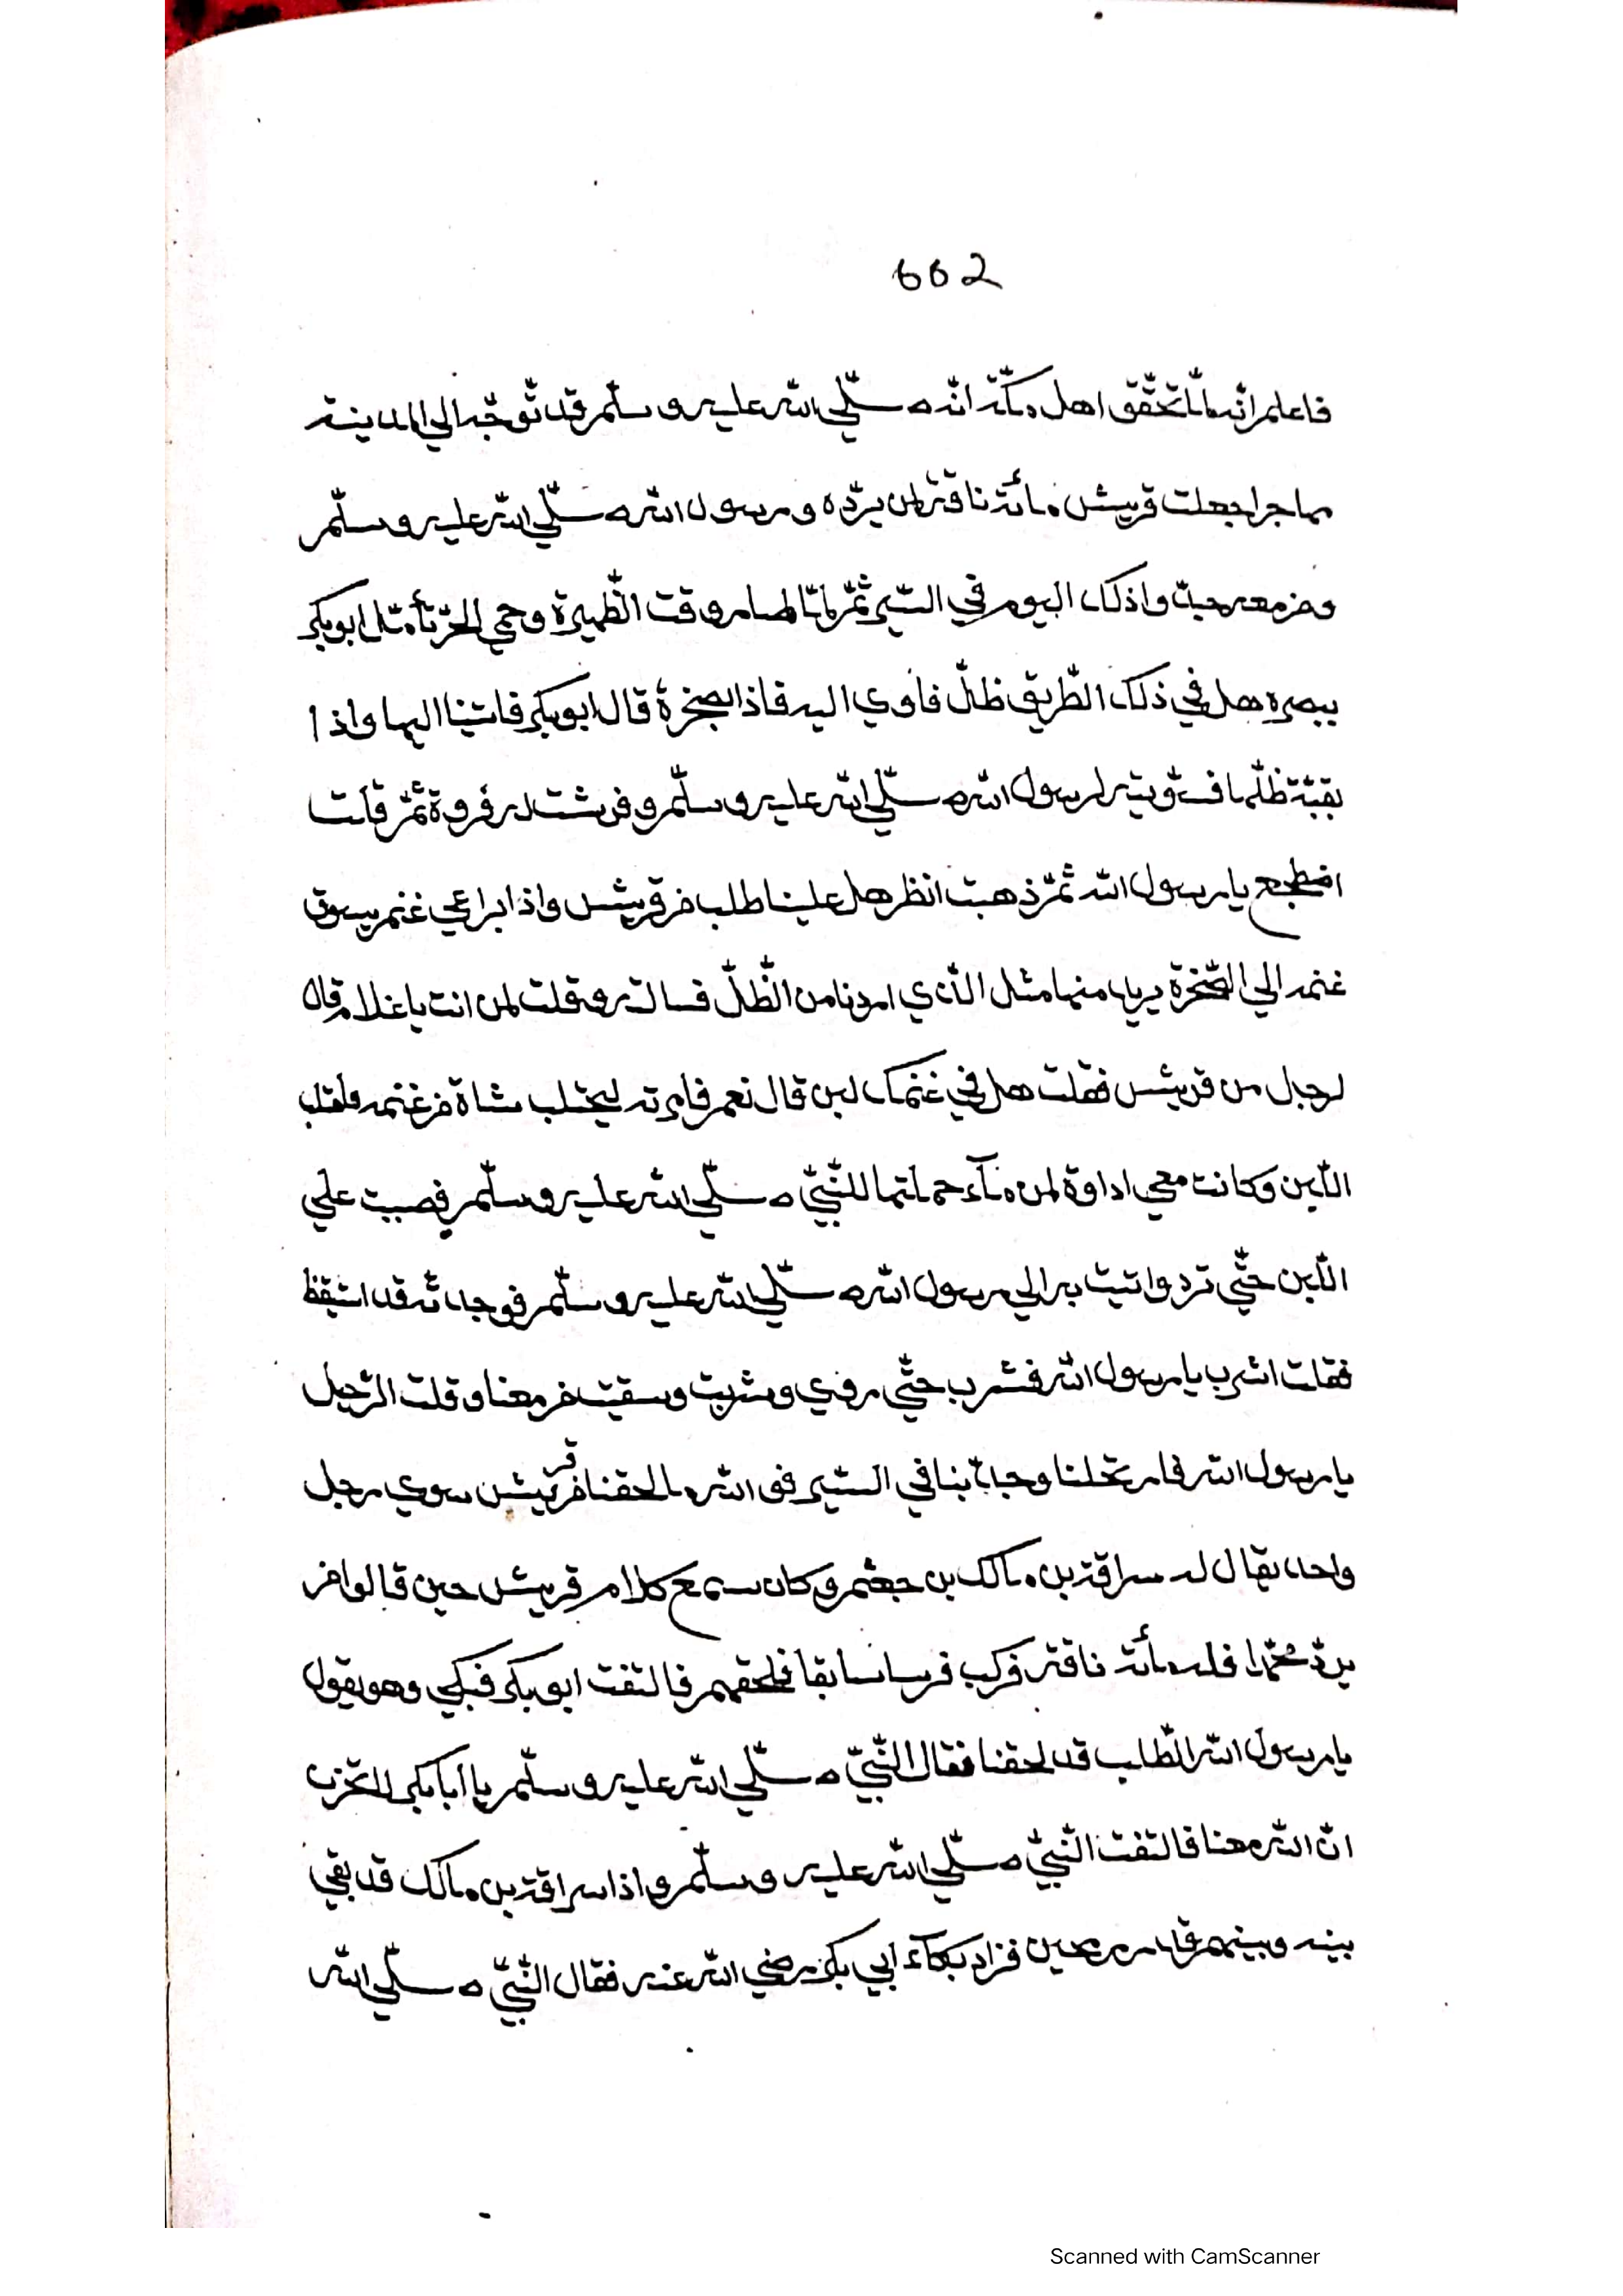 662
فاعلم انّه لمّا تحقّق اهل مكّة انّه صلّي الله عليه وسلّم قد توّجّه الي المدينة
مهاجرا جعلت قريش مأئة ناقة لمن يردّه ورسول الله صلّي الله عليه وسلّم
ومن معه حيث واذلك اليوم في السّير ثمّ لمّا لهما وقت الظّهيرة وحمي الحرّ تأمّل ابوبكر
ببصره هل في ذلك الطّريق ظلّ فأوي اليه فاذا بصخرة قال ابوبكر فاتينا اليها واذا
بقيّة ظلّها فسّويته لرسول الله صلّي الله عليه وسلّم وفرشت له فروة ثمّ قلت
اضطجع يا رسول الله ثمّ ذهبت انظر هل علينا طلب من قريش واذا براعي غنم يسوق
غنمه الي الصّخرة يريد منها مثل الّذي اردنا من الظّلّ فسالته وقلت لمن انت يا غلام قال
لرجل من قريش فقلت هل في غنمك لبن قال نعم فامرته ليحتلب شاة من غنمه فاحتلب
اللّبن وكانت معي اداوة لمن مآء حملتها للنّبيّ صلّي الله عليه وسلّم فصببت علي
اللّبن حتّي ترد واتيت به الي رسول الله صلّي الله عليه وسلّم فوجدته قد استيقظ
فقلت اشرب يا رسول الله فشرب حتّي روي وشربت وسقيت من معنا وقلت الرّحيل
يا رسول الله فارتحلنا وجدّ بنا في السّير فو الله ما لحقنا من قريش سوي رجل
واحد يقال له سراقة بن مالك بن جعشم وكان سمع كلام قريش حين قالوا من
يردّ محمّدا فله مأئة ناقة فركب فرسا سابقا فلحقهم فالتفت ابوبكر فبكي وهو يقول
يا رسول الله الطّلب قد لحقنا فقال النّبيّ صلّي الله عليه وسلّم يا ابا بكر لا تحزن
انّ الله معنا فالتفت النّبيّ صلّي الله عليه وسلّم واذا سراقة بن مالك قد بقي
بينه وبينهم قدر رمحين فزاد بكآء ابي بكر رضي الله عنه فقال النّبيّ صلّي الله
Scanned with CamScanner